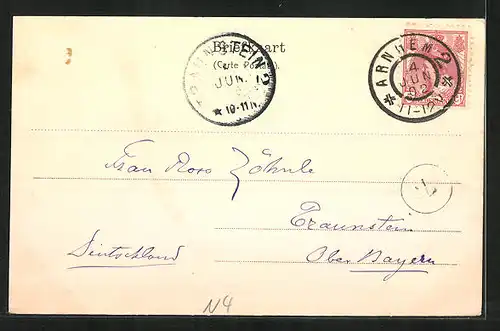 Briefkaart
(Carte Postale)
TRAUNSTEIN 2
JUN. 
★ 10-11 N.
ARNHEM 2
4
JUN
02
11-12
Frau Rosa
Traunstein
Ober Bayern
Deutschland
N4